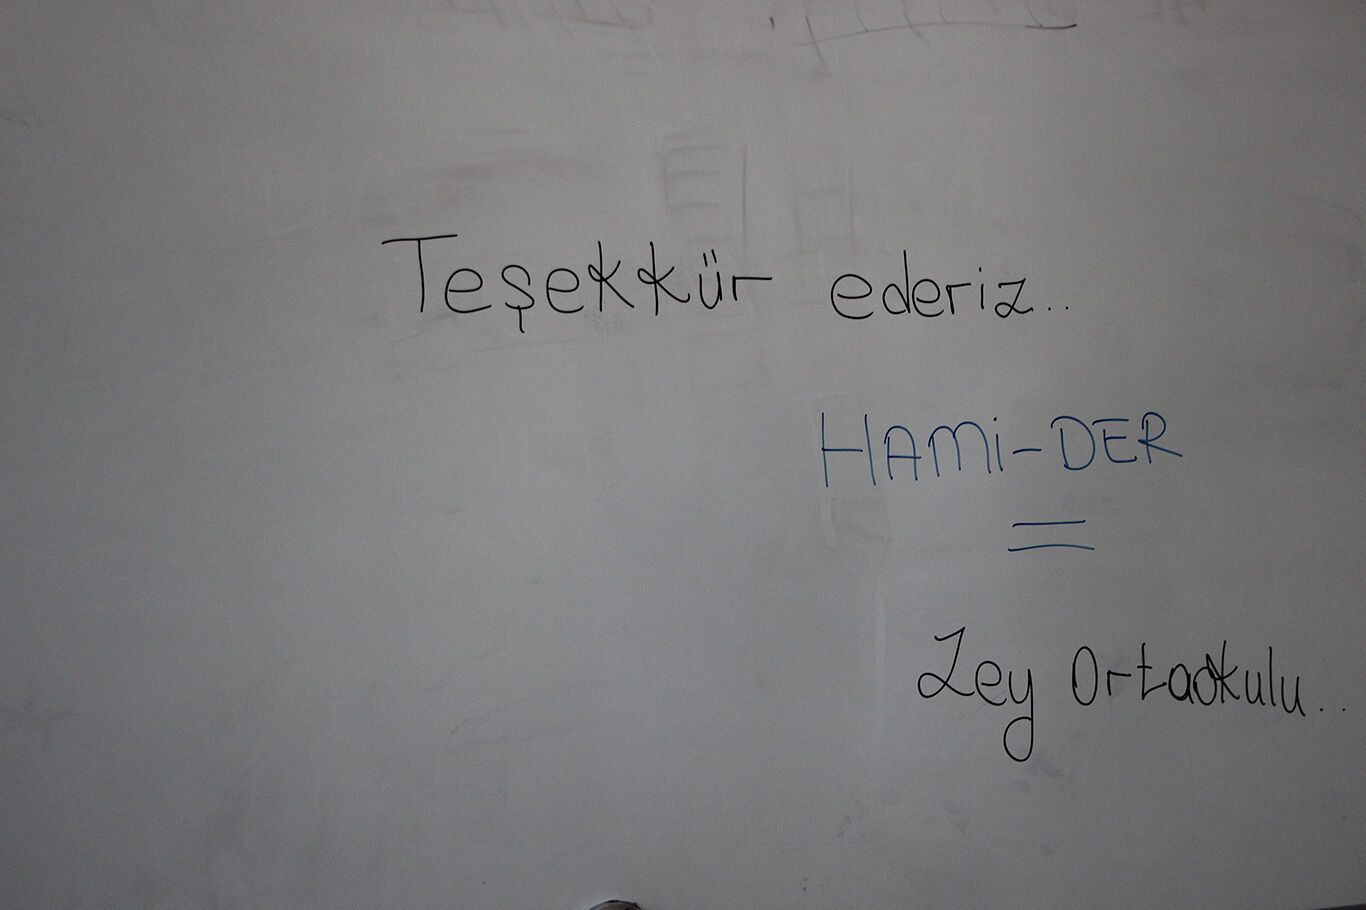 Teşekkür ederiz..
HAMİ-DER
Zey Ortaokulu..